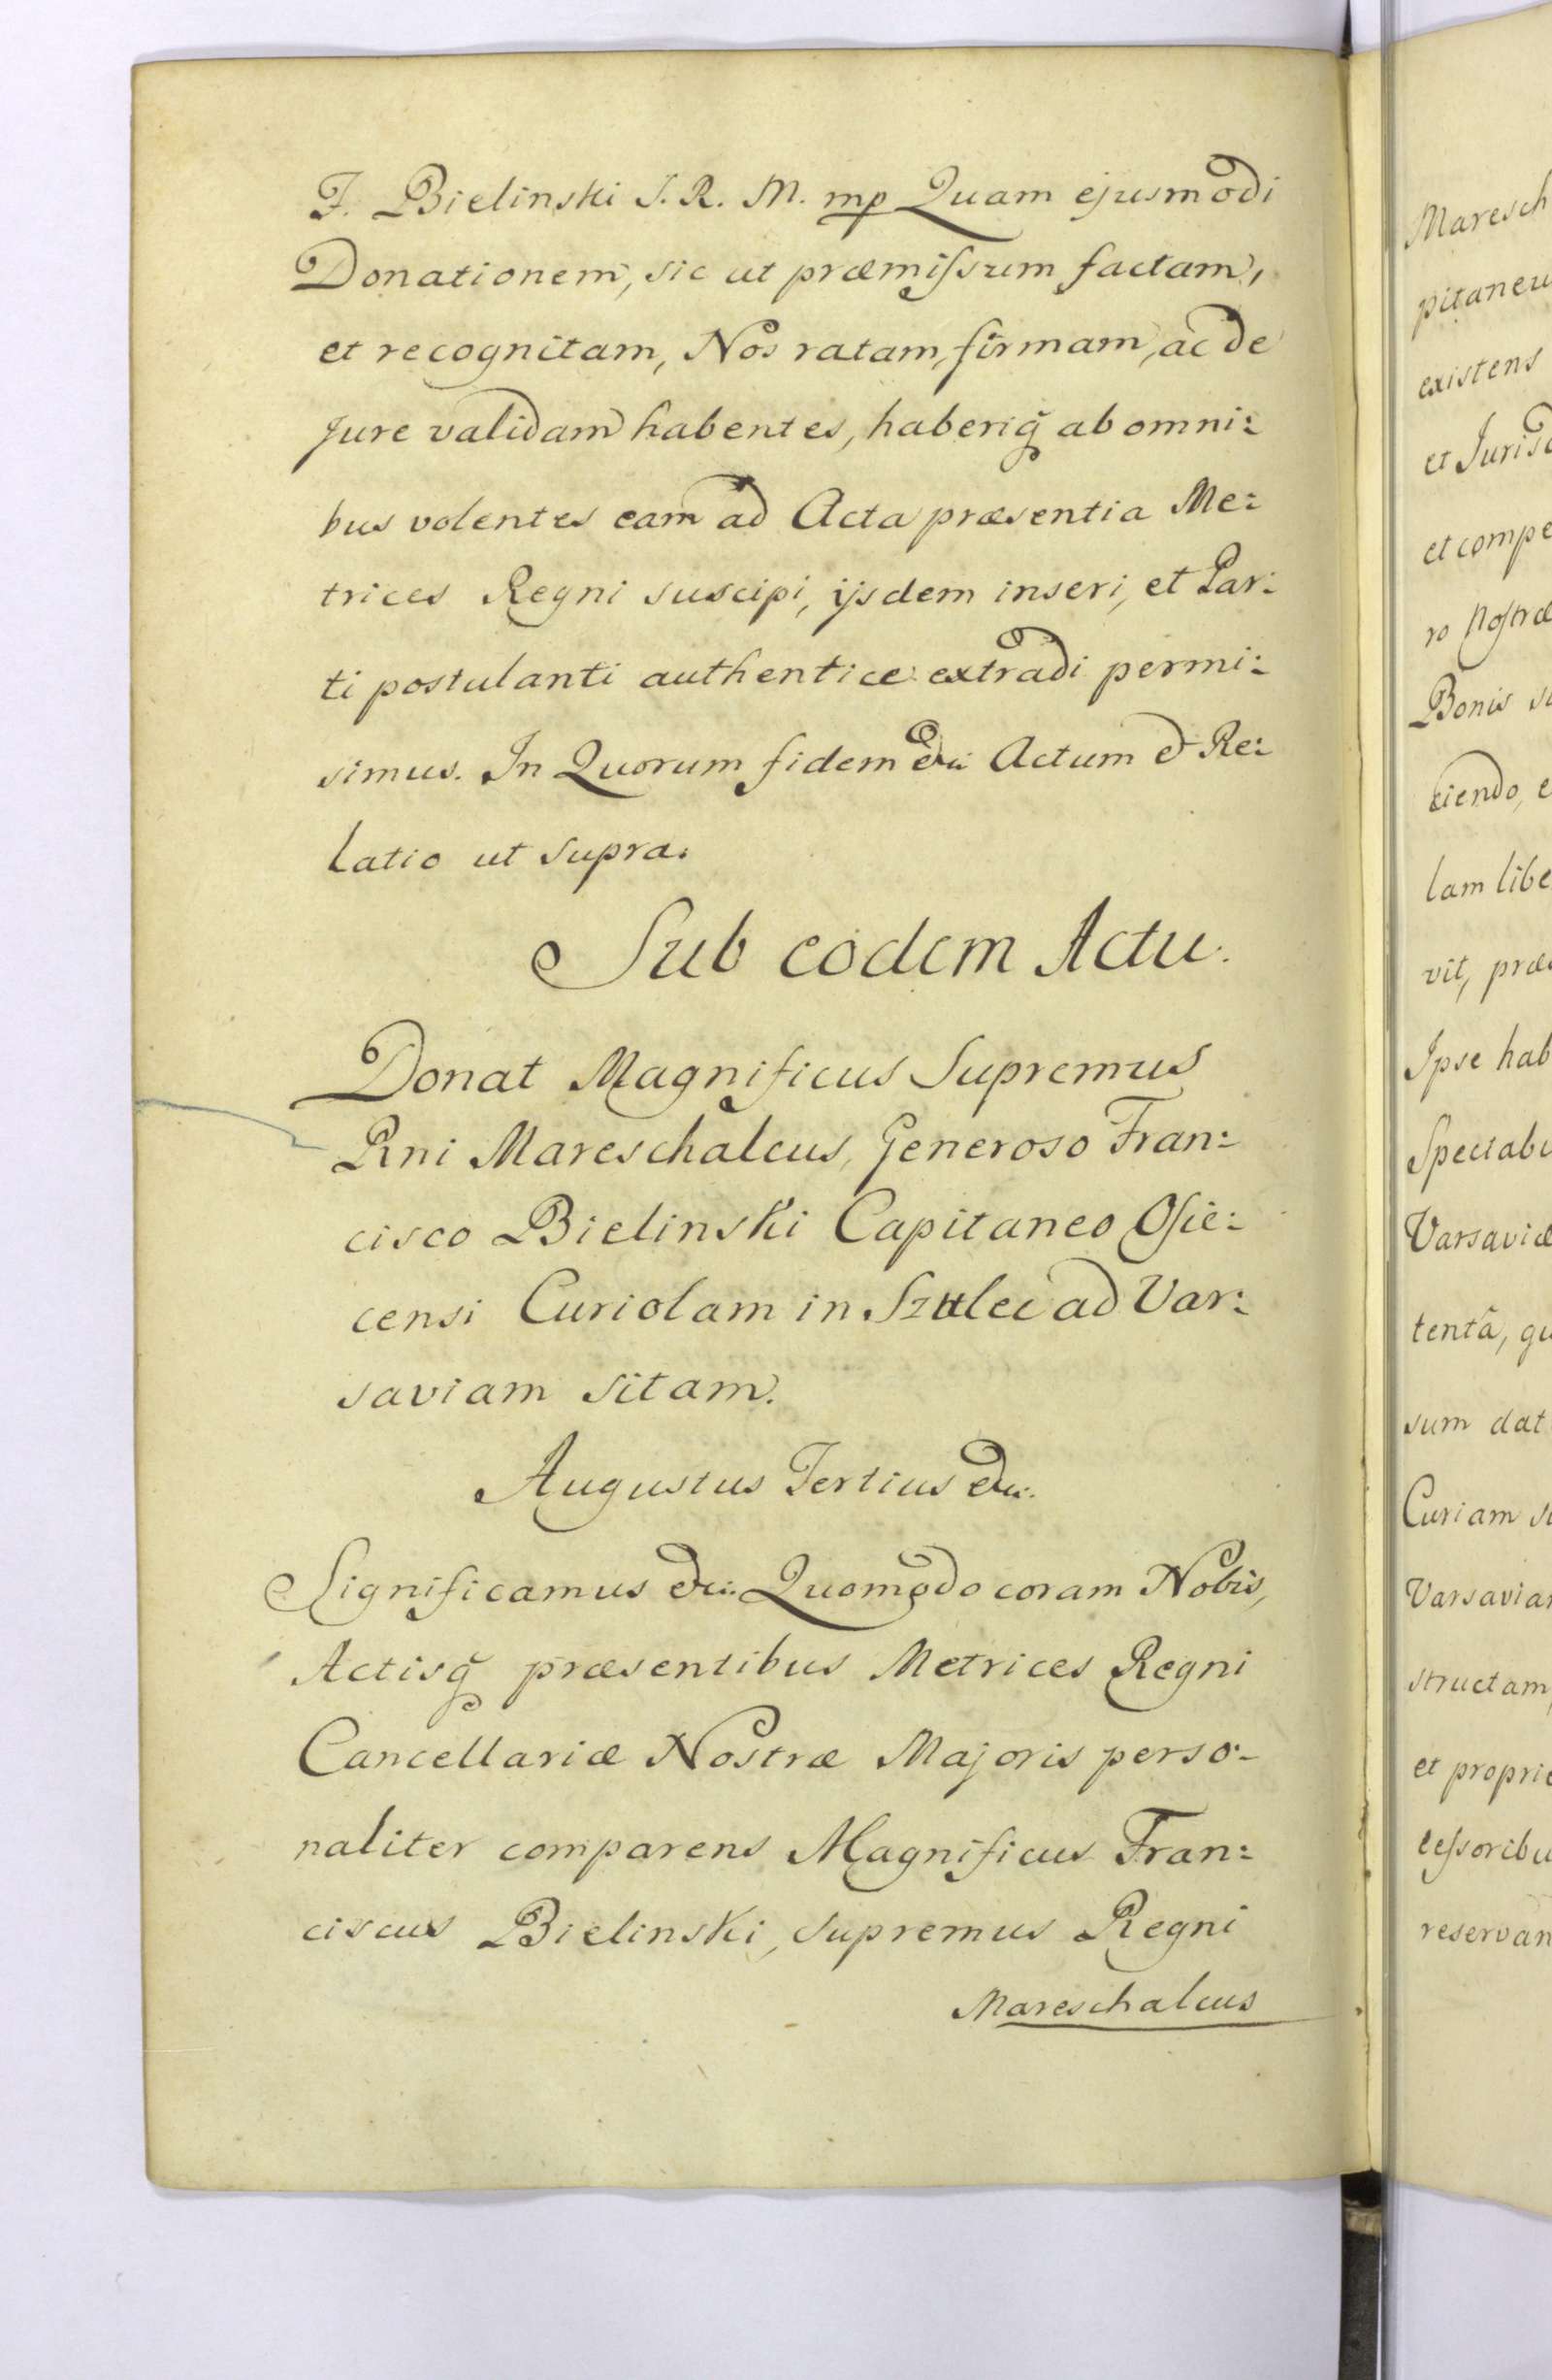 F. Bielinski S. R. M. mp Quam ejusmodi
Donationem, sic ut præmissum factam,
et recognitam, Nos ratam, firmam, ac de
Jure validam habentes, haberiq̃ ab omni:
bus volentes eam ad Acta præsentia Me:
trices Regni suscipi, ijsdem inseri, et Par:
ti postulanti authentice extradi permi:
simus. In Quorum fidem &c: Actum & Re:
latio ut supra.
Sub eodem Actu.
Donat Magnificus Supremus
Rni Mareschalcus, Generoso Fran:
cisco Bielinski Capitaneo Osie:
censi Curiolam in Szulec ad Var:
saviam sitam.
Augustus Tertius &c:.
Significamus &c: Quomodo coram Nobis,
Actisq̃ præsentibus Metrices Regni
Cancellariæ Nostræ Majoris perso:
naliter comparens Magnificus Fran:
ciscus Bielinski, Supremus Regni
Mareschalcus
Maresch
pitaneu
existens
et Jurisd
et compe
ro Nostræ
Bonis su
ciendo, e
lam libe
vit, præ
Ipse hab
Spectabi
Varsaviæ
tentâ, qu
sum dat
Curiam si
Varsavia
structam,
et proprie
cessoribu
reservan